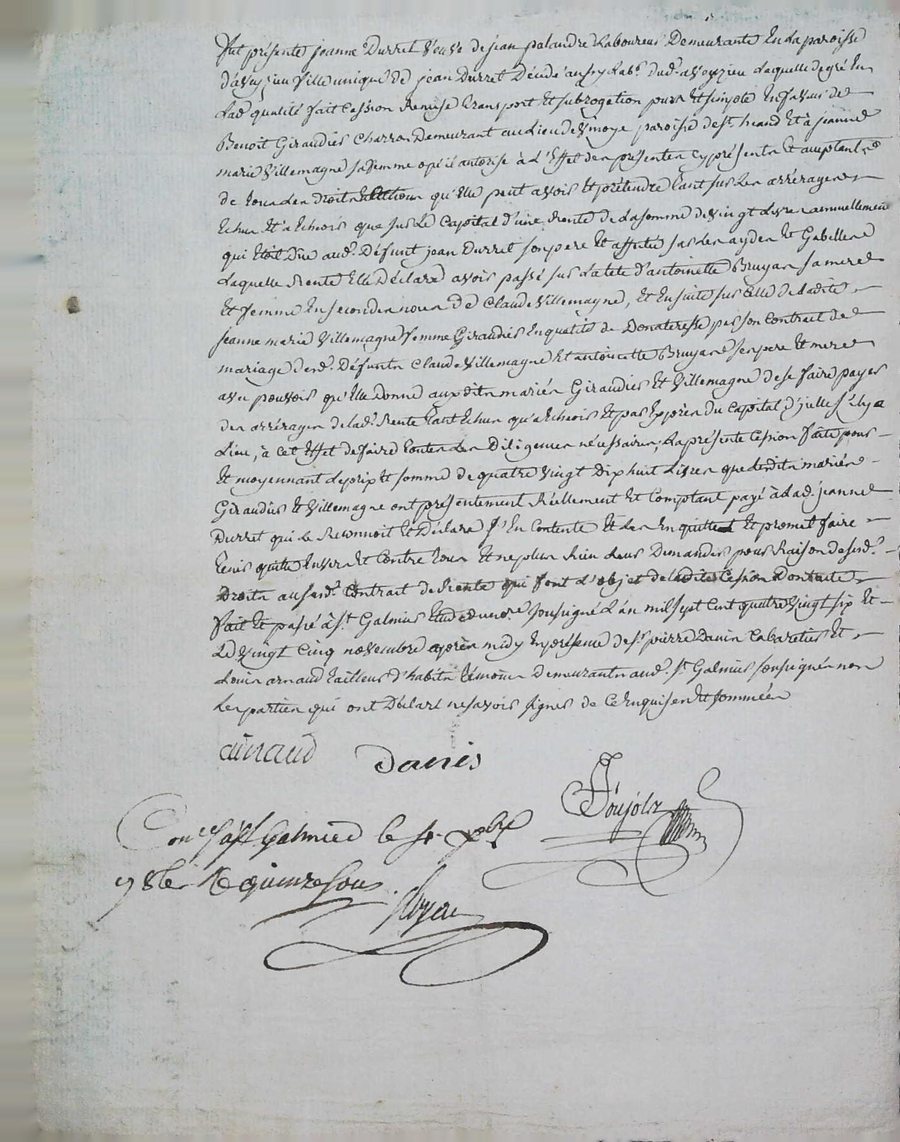 Fut présente jeanne Durret veuve de jean palandre Laboureur Demeurante En la paroisse
fille unique De jean Durret Décédé aussy Lab.r dud. Laquelle de gré En
Lad. qualité fait Cession Remise transport Et subrogation pure Et simple En faveur de
Benoit Giraudier Charron Demeurant au Lieu de paroisse de st. heand Et à jeanne
marie Villemagne sa femme qu'il autorise à L'Effet des présentes cy présents Et acceptants
de tous Les Droits qu'Elle peut avoir Et prétendre tant sur Les arrérages
Echus Et à Echeoir que sur Le Capital d'une Rente de La somme de vingt Livres annuellement
qui Etoit Due aud. Défunt jean Durret son pere Et affectée sur Les aydes Et Gabelles
Laquelle Rente Elle Déclare avoir passé sur La tete d'antoinette Bruyas sa mere
Et femme En secondes noces de Claude Villemagne, Et Ensuite sur Celle de Ladite
jeanne marie Villemagne femme Giraudier En qualité de Donateresse par son Contrat de
mariage desd. Défunts Claude Villemagne Et antoinette Bruyas ses pere Et mere
avec pouvoir qu'Elle Donne auxdits mariés Giraudier Et Villemagne de se faire payer
des arrérages de Lad. Rente tant Echus qu'a Echeoir Et pas Du Capital d'jcelle s'il y a
Lieu, à cet Effet de faire toutes Les Diligences nécessaires, La présente Cession faite pour
Et moyennant Le prix Et somme de quatre vingt Dix huit Livres que Lesdits mariés
Giraudier Et Villemagne ont présentement Réellement Et Comptant payé à Lad. jeanne
Durret qui Le Reconnoit Et Déclare s'En Contente Et Les En quitte Et promet faire
tenir quite Envers Et Contre tous Et ne plus Rien Leur Demander pour Raison desd.
Droits ausd. Contrat de Rente qui font L'objet de Ladite Cession Dont acte
fait Et passé à St. Galmier Etude du no.re soussigné L'an mil sept Cent quatre vingt six Et
Le vingt Cinq novembre après midy En présence de Sr. pierre Davin Cabaretier Et
Louis arnaud tailleur d'habits témoins Demeurants aud. St. Galmier soussignés non
Les parties qui ont Déclaré ne savoir signer de Ce Enquises Et sommées
arnaud Davin
Poujolz
Con.lé à St Galmier le 4. Xbre
1786 Rç quinze sous.